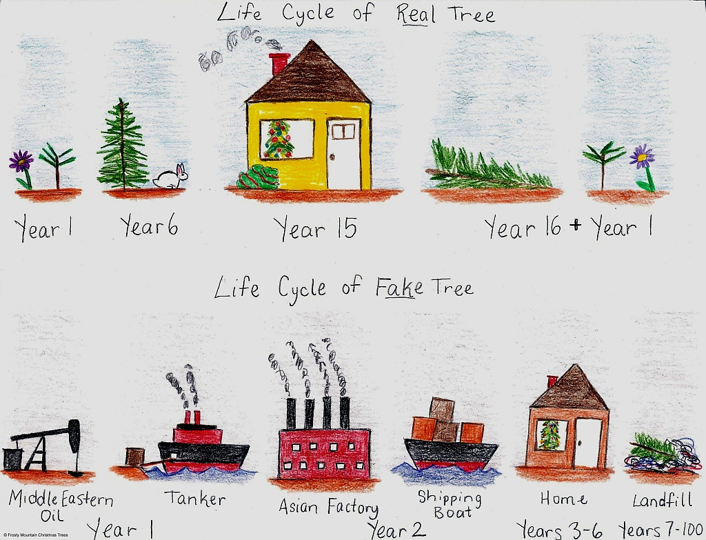 Life Cycle of Real Tree
Year 1
Year 6
Year 15
Year 16 + Year 1
Life Cycle of Fake Tree
Middle Eastern
Oil
Tanker
Asian Factory
Shipping
Boat
Home
Landfill
Year 1
Year 2
Years 3-6
Years 7-100
© Frosty Mountain Christmas Trees